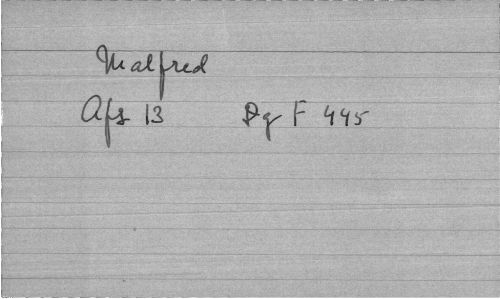 Malfred
Afs 13 Dg F 445